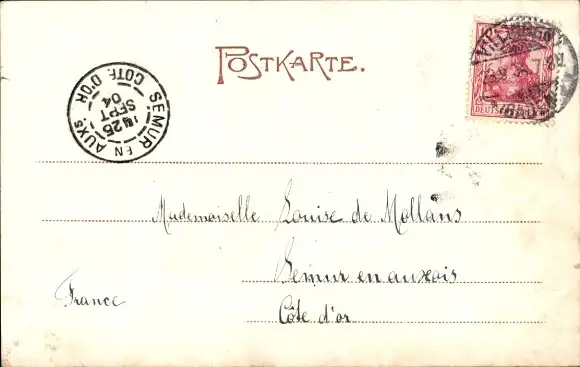 POSTKARTE.
SEMUR EN AUXS.
COTE D'OR
26
SEPT
04
Mademoiselle Louise de Mollans
Semur en auxois
France
Côte d'or